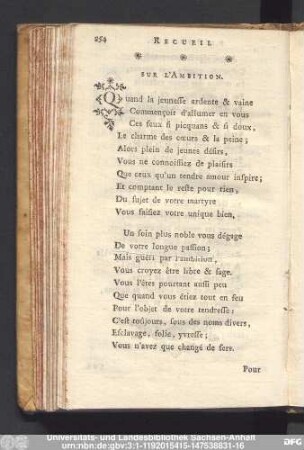 254 RECUEIL
SUR L'AMBITION.
Quand la jeunesse ardente & vaine
Commençoit d'allumer en vous
Ces feux si picquans & si doux,
Le charme des cœurs & la peine;
Alors plein de jeunes désirs,
Vous ne connoissiez de plaisirs
Que ceux qu'un tendre amour inspire;
Et comptant le reste pour rien,
Du sujet de votre martyre
Vous faisiez votre unique bien.
Un soin plus noble vous dégage
De votre longue passion;
Mais guéri par l'ambition,
Vous croyez être libre & sage.
Vous l'êtes pourtant aussi peu
Que quand vous étiez tout en feu
Pour l'objet de votre tendresse:
C'est toûjours, sous des noms divers,
Esclavage, folie, yvresse;
Vous n'avez que changé de fers.
Pour
Universitäts- und Landesbibliothek Sachsen-Anhalt
urn:nbn:de:gbv:3:1-1192015415-147538831-16
DFG